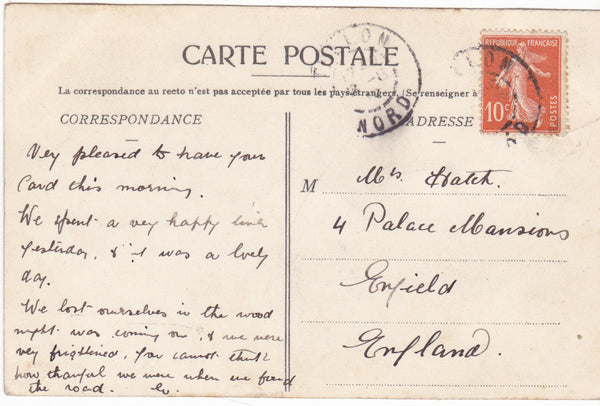 CARTE POSTALE
La correspondance au recto n'est pas acceptée par tous les pays étrangers. (Se renseigner à
CORRESPONDANCE
ADRESSE
REPUBLIQUE FRANÇAISE
10c
POSTES
LON
NORD
LON
Very pleased to have your
Card this morning.
We spent a very happy time
yesterday, & it was a lovely
day.
We lost ourselves in the wood
night was coming on, & we were
very frightened, you cannot think
how thankful we were when we found
the road.
M Mrs Hatch.
4 Palace Mansions
Enfield
England.